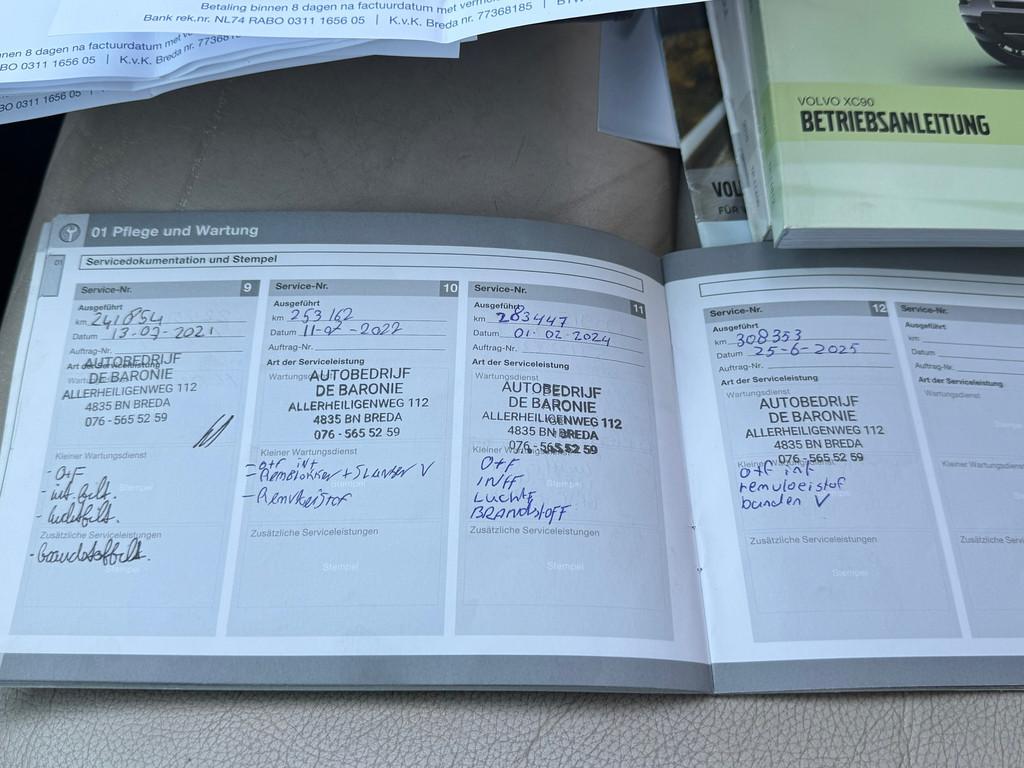 Betaling binnen 8 dagen na factuurdatum met
Bank rek.nr. NL74 RABO 0311 1656 05 | K.v.K. Breda nr. 77368185 |
nen 8 dagen na factuurdatum met
BO 0311 1656 05 | K.v.K. Breda nr.
RABO 0311 1656 05 |
VOLVO XC90
BETRIEBSANLEITUNG
VOL
FÜR
01 Pflege und Wartung
01
Servicedokumentation und Stempel
Service-Nr. 9
Ausgeführt
km 241854
Datum 13-07-2021
Auftrag-Nr.
Art der Serviceleistung
AUTOBEDRIJF
DE BARONIE
ALLERHEILIGENWEG 112
4835 BN BREDA
076 - 565 52 59
Kleiner Wartungsdienst
- O+F
- int filt.
- luchtfilt.
Stempel
Zusätzliche Serviceleistungen
- brandstoffilt.
Stempel
Service-Nr. 10
Ausgeführt
km 253162
Datum 11-07-2022
Auftrag-Nr.
Art der Serviceleistung
Wartungsdienst
AUTOBEDRIJF
DE BARONIE
ALLERHEILIGENWEG 112
4835 BN BREDA
076 - 565 52 59
Kleiner Wartungsdienst
- o+f int
- Remblokken + Slangen V
- Remvloeistof
Zusätzliche Serviceleistungen
Stempel
Service-Nr. 11
Ausgeführt
km 283447
Datum 01-02-2024
Auftrag-Nr.
Art der Serviceleistung
Wartungsdienst
AUTOBEDRIJF
DE BARONIE
ALLERHEILIGENWEG 112
4835 BN BREDA
076 - 565 52 59
O+F
INFF
Lucht
BRANDSTOFF
Zusätzliche Serviceleistungen
Stempel
Service-Nr. 12
Ausgeführt
km 308353
Datum 25-6-2025
Auftrag-Nr.
Art der Serviceleistung
Wartungsdienst
AUTOBEDRIJF
DE BARONIE
ALLERHEILIGENWEG 112
4835 BN BREDA
076 - 565 52 59
o+f inf
remvloeistof
banden V
Zusätzliche Serviceleistungen
Stempel
Service-Nr.
Ausgeführt
km
Datum
Auftrag-Nr.
Art der Serviceleistung
Wartungsdienst
Kleiner Wartungsdienst
Zusätzliche Se